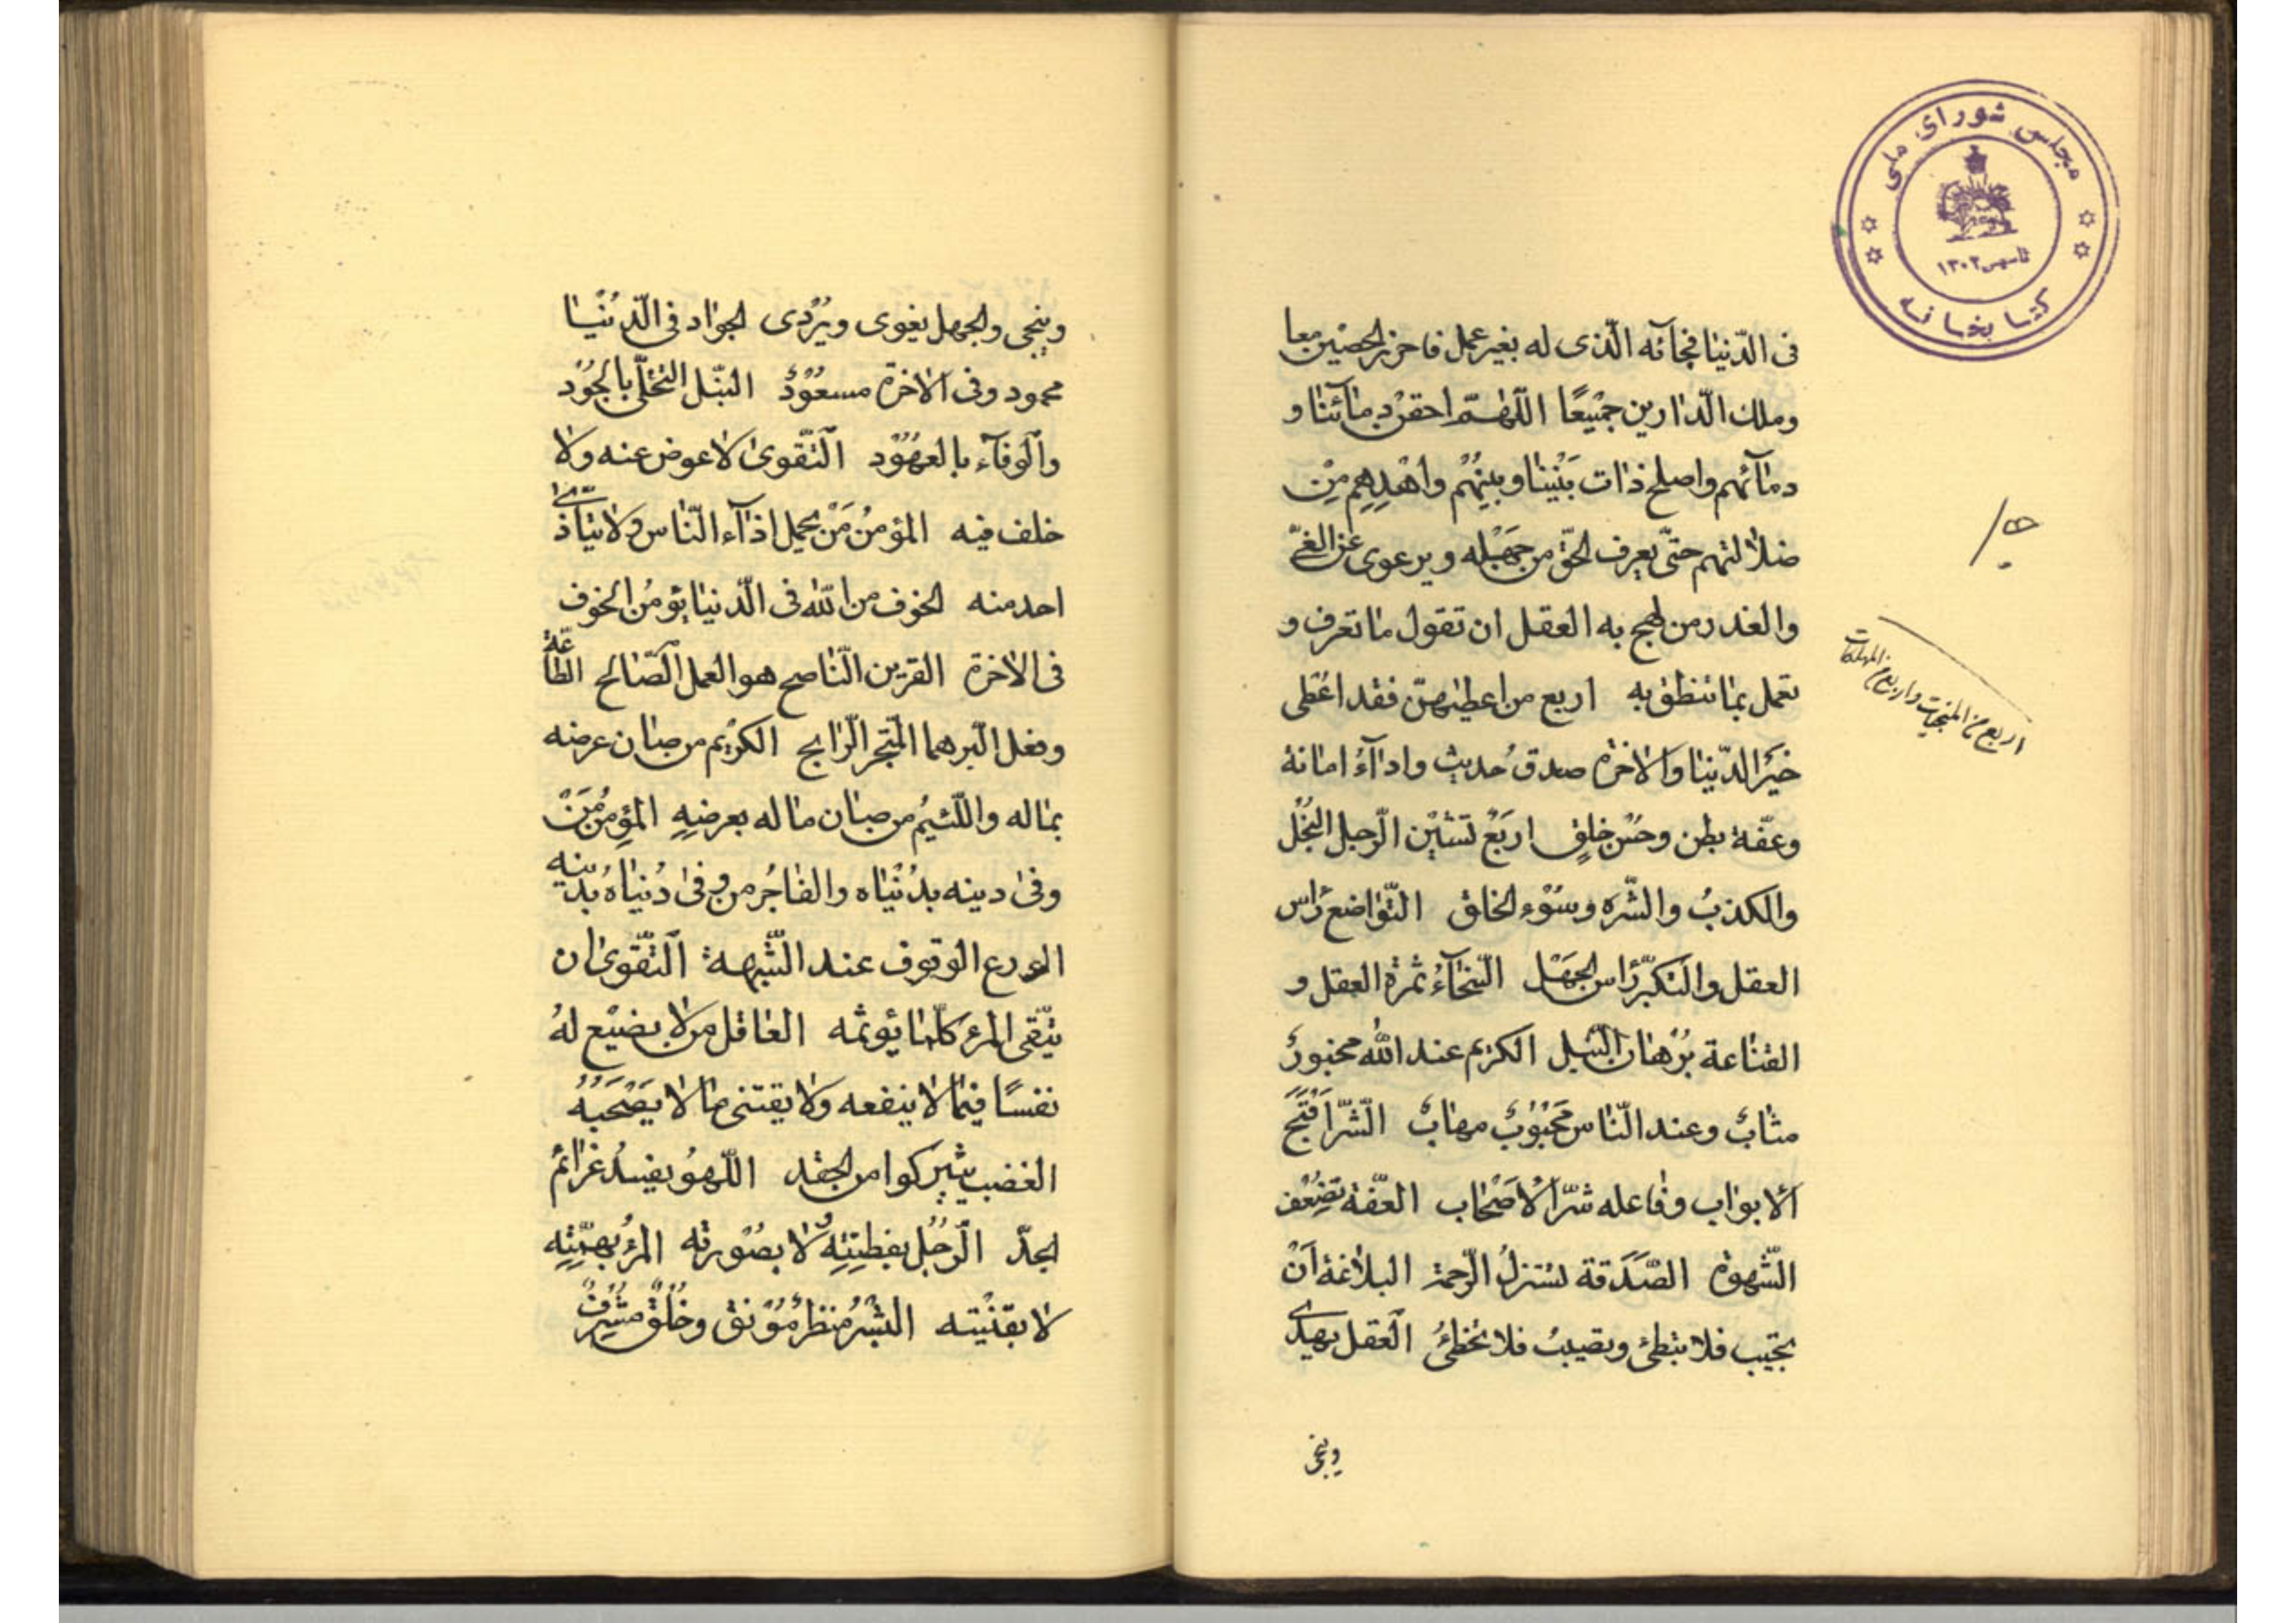 مجلس شورای ملی
تاسیس ۱۳۰۲
کتابخانه
فى الدّنيا فجآئه الّذى له بغير عمل فاحرز الحظّين معا
وملك الدّارين جميعًا اللّهمّ احقن دمائنا و
دمآئهم واصلح ذات بَيْننا وبينهُم واهْدِهِم مِنْ
ضلالتهم حتّى يعرف الحقّ من جَهِله ويرعوى عن الغىّ
والغدر من لهج به العقل ان تقول ما تعرف و
تعمل بما تنطق به اربع من اعطيهنّ فقد اعُطى
خيَر الدّنيا والاخرة صدق حُديث واداۤءُ امانة
وعفّة بطن وحسْن خلقٍ اربَعٌ تشيْن الرّجل البُخْل
والكذبُ والشّرَه وسُوْء الخلق التّواضع رَاس
العقل والتكبّر رَاس الجهَل السّخآءُ ثمرة العقل و
القناعة بُرْهان النّبل الكريم عند الله محبورٌ
مثابٌ وعند النّاس مَحَبُوْبٌ مهابٌ الشّر اَقْبَح
الابواب وفاعله شرّ الاصْحاب العّفة تضعِف
الشّهوة الصَّدَقة تستنزلُ الرّحمة البلاغة اَنْ
تجيب فلا تبطئ وتصيبُ فلا تخطئُ العقل يهدى
وينجى
اربع من المنجيات واربع من المهلكات
وينجى والجهل يغوى ويُرْدى الجواد فى الّدنْيا
محمود وفى الاخرة مسعُوْدٌ النبّل التحلّى بالجُوْد
والوفآء بالعهُوْد التّقوى لا عوض عنه ولا
خلف فيه المؤمنُ مَنْ يحمل اذآء النّاس ولا يتأذّى
احد منه الخوف من الله فى الدّنيا يؤمُن الخوف
فى الاخرة القرين النّاصح هو العمل الصّالح الطّاعة
وفعل البّر هما المتجر الرّابح الكريْم من صان عرضه
بماله واللّئيُم من صان ماله بعرضهِ المؤمنُ مَنْ
وقى دينه بدُنْياه والفاجُر من وقى دُنياهُ بدينهِ
الورع الوقوف عند الشّبهة التّقوى ان
يتّقى المرء كلّما يؤثمه العاقل من لا يضيْع لهُ
نفسًا فيما لا ينفعه ولا يقتنى ما لا يَصْحَبهُ
الغضب يثير كوامن الحقد اللّهوُ يفسدُ عزائم
الجدّ الرّجُل بفطنتِهِ لا بصُوْرته المرْء بهمّتِه
لا بقنْيته البُشْرُ منظرٌ مُوْنق وخُلُقٌ مشْرِقٌ